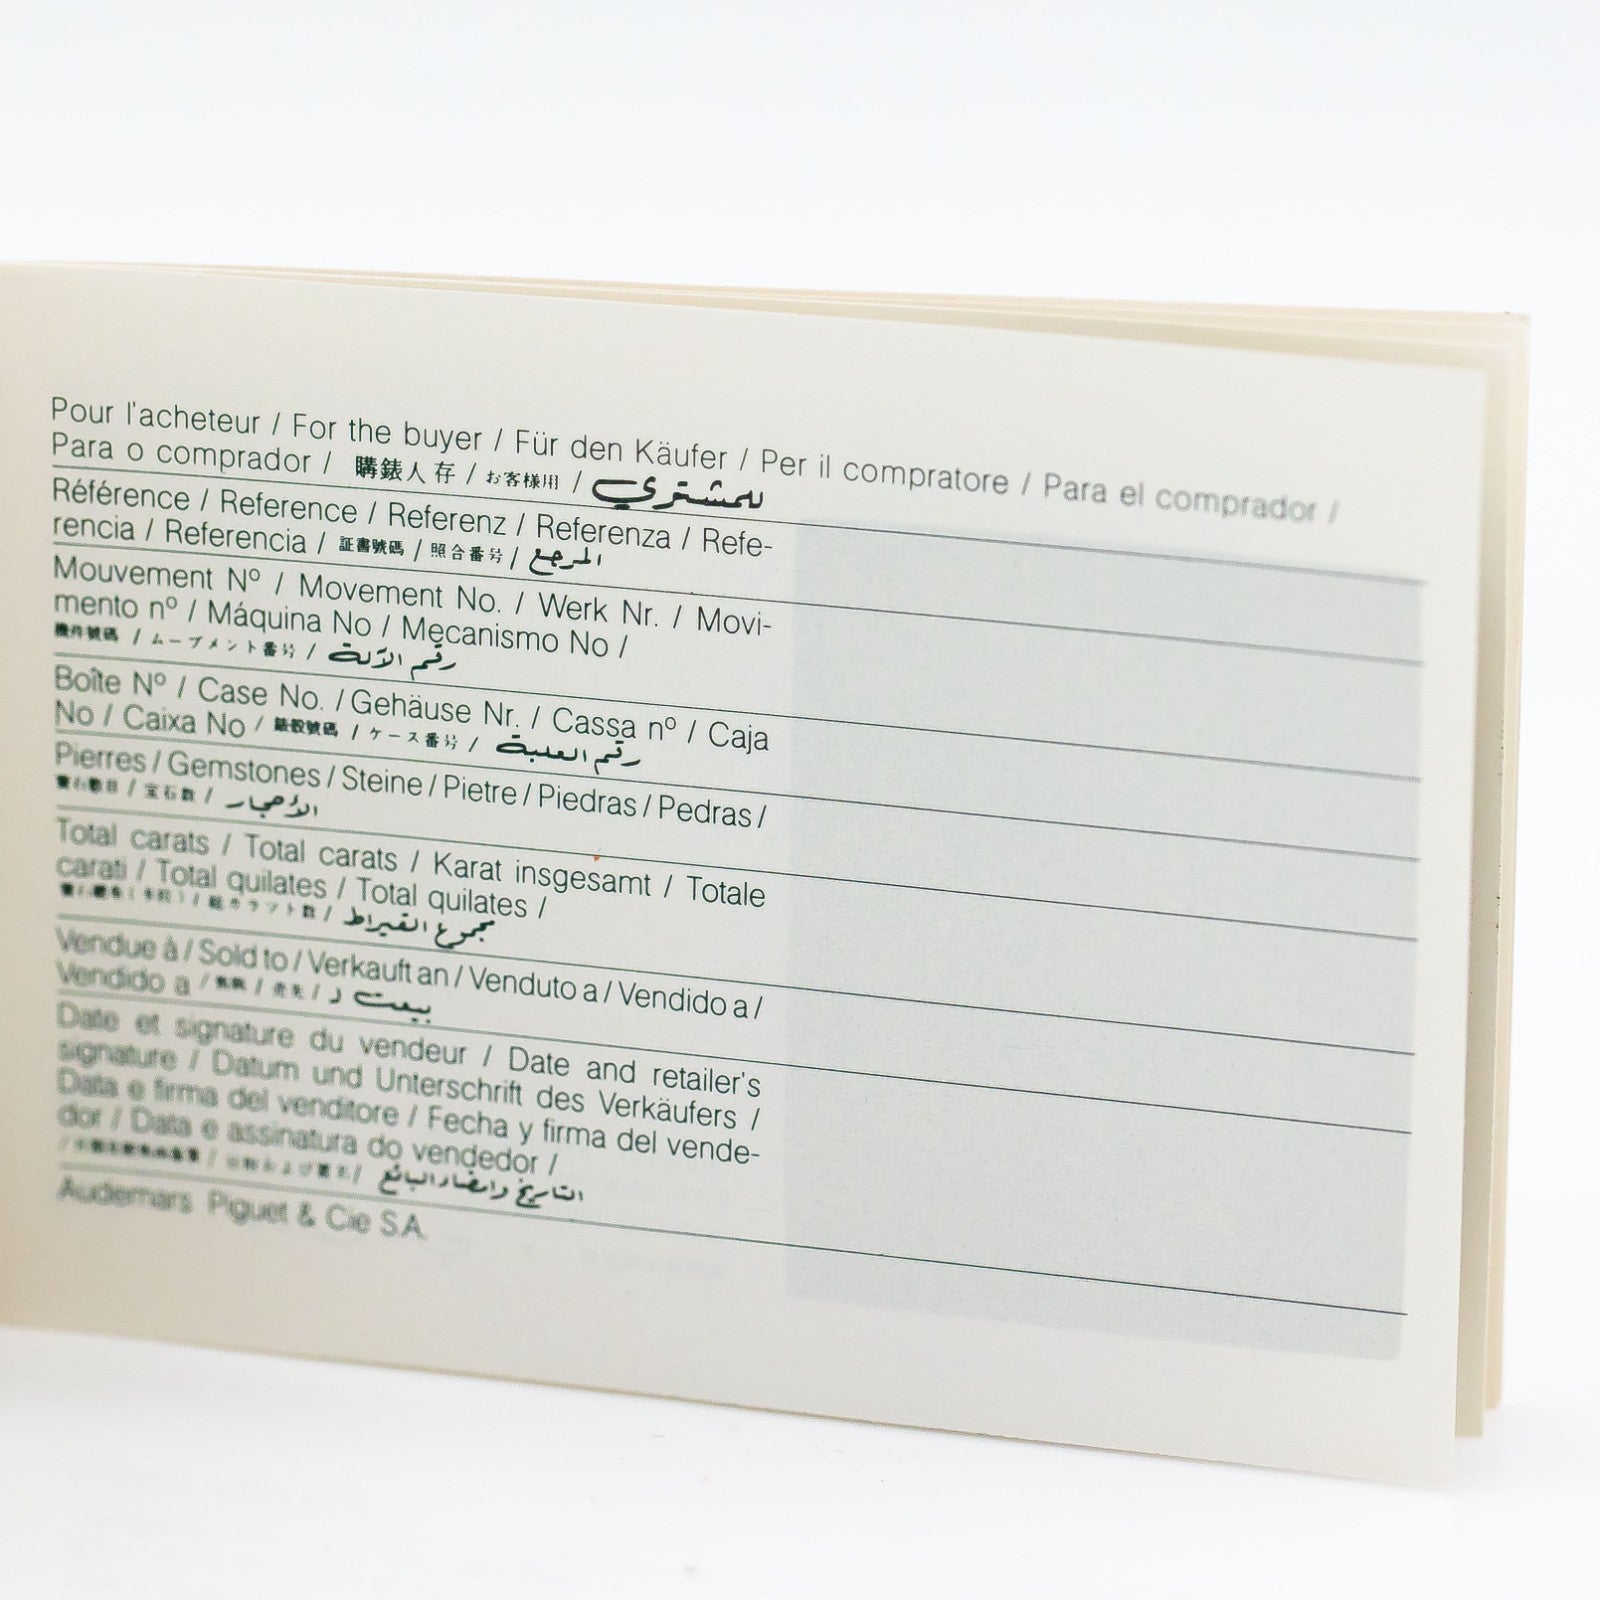 Pour l'acheteur / For the buyer / Für den Käufer / Per il compratore / Para el comprador /
Para o comprador / 購錶人存 / お客様用 / للمشتري
Référence / Reference / Referenz / Referenza / Refe-
rencia / Referencia / 証書號碼 / 照合番号 / المرجع
Mouvement Nº / Movement No. / Werk Nr. / Movi-
mento nº / Máquina No / Mecanismo No /
機件號碼 / ムーブメント番号 / رقم الآلة
Boîte Nº / Case No. / Gehäuse Nr. / Cassa nº / Caja
No / Caixa No / 錶殼號碼 / ケース番号 / رقم العلبة
Pierres / Gemstones / Steine / Pietre / Piedras / Pedras /
寶石數目 / 宝石数 / الأحجار
Total carats / Total carats / Karat insgesamt / Totale
carati / Total quilates / Total quilates /
総カラット数 / مجموع القيراط
Vendue à / Sold to / Verkauft an / Venduto a / Vendido a /
Vendido a / / / بيعت لـ
Date et signature du vendeur / Date and retailer's
signature / Datum und Unterschrift des Verkäufers /
Data e firma del venditore / Fecha y firma del vende-
dor / Data e assinatura do vendedor /
/ / / التاريخ وامضاء البائع
Audemars Piguet & Cie S.A.